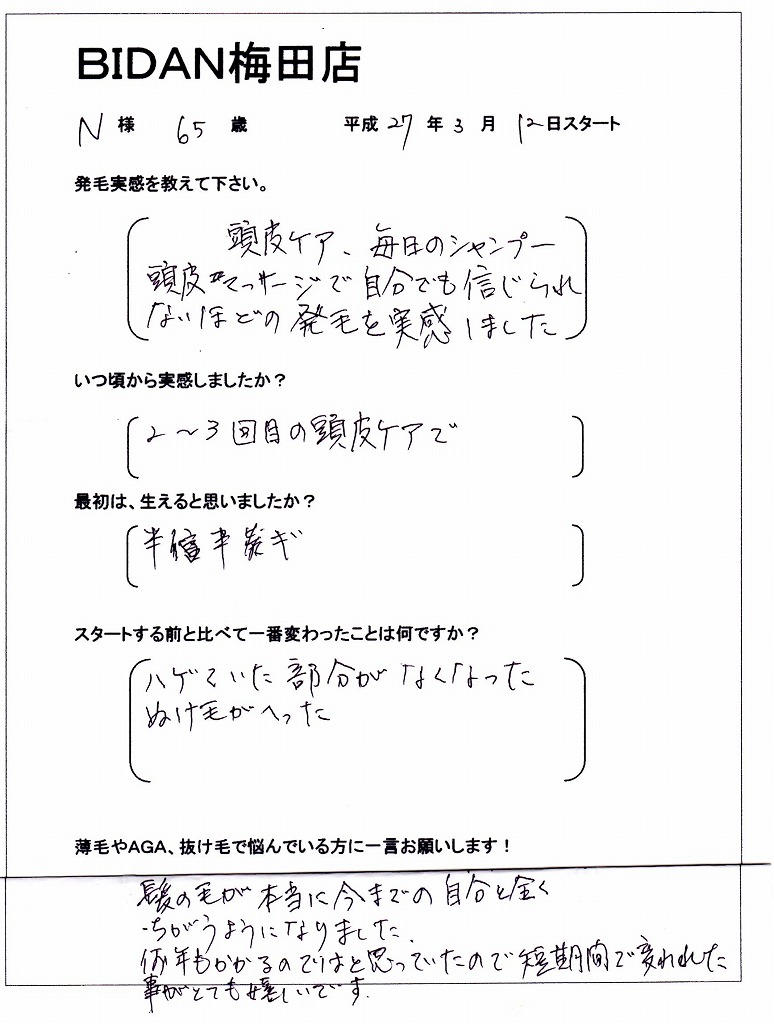 BIDAN梅田店
N 様 65 歳 平成 27 年 3 月 12 日スタート
発毛実感を教えて下さい。
頭皮ケア、毎日のシャンプー
頭皮マッサージで自分でも信じられ
ないほどの発毛を実感しました
いつ頃から実感しましたか？
2～3回目の頭皮ケアで
最初は、生えると思いましたか？
半信半疑ギ
スタートする前と比べて一番変わったことは何ですか？
ハゲていた部分がなくなった
ぬけ毛がへった
薄毛やAGA、抜け毛で悩んでいる方に一言お願いします！
髪の毛が本当に今までの自分と全く
ちがうようになりました。
何年もかかるのではと思っていたので短期間で変われた
事がとても嬉しいです。